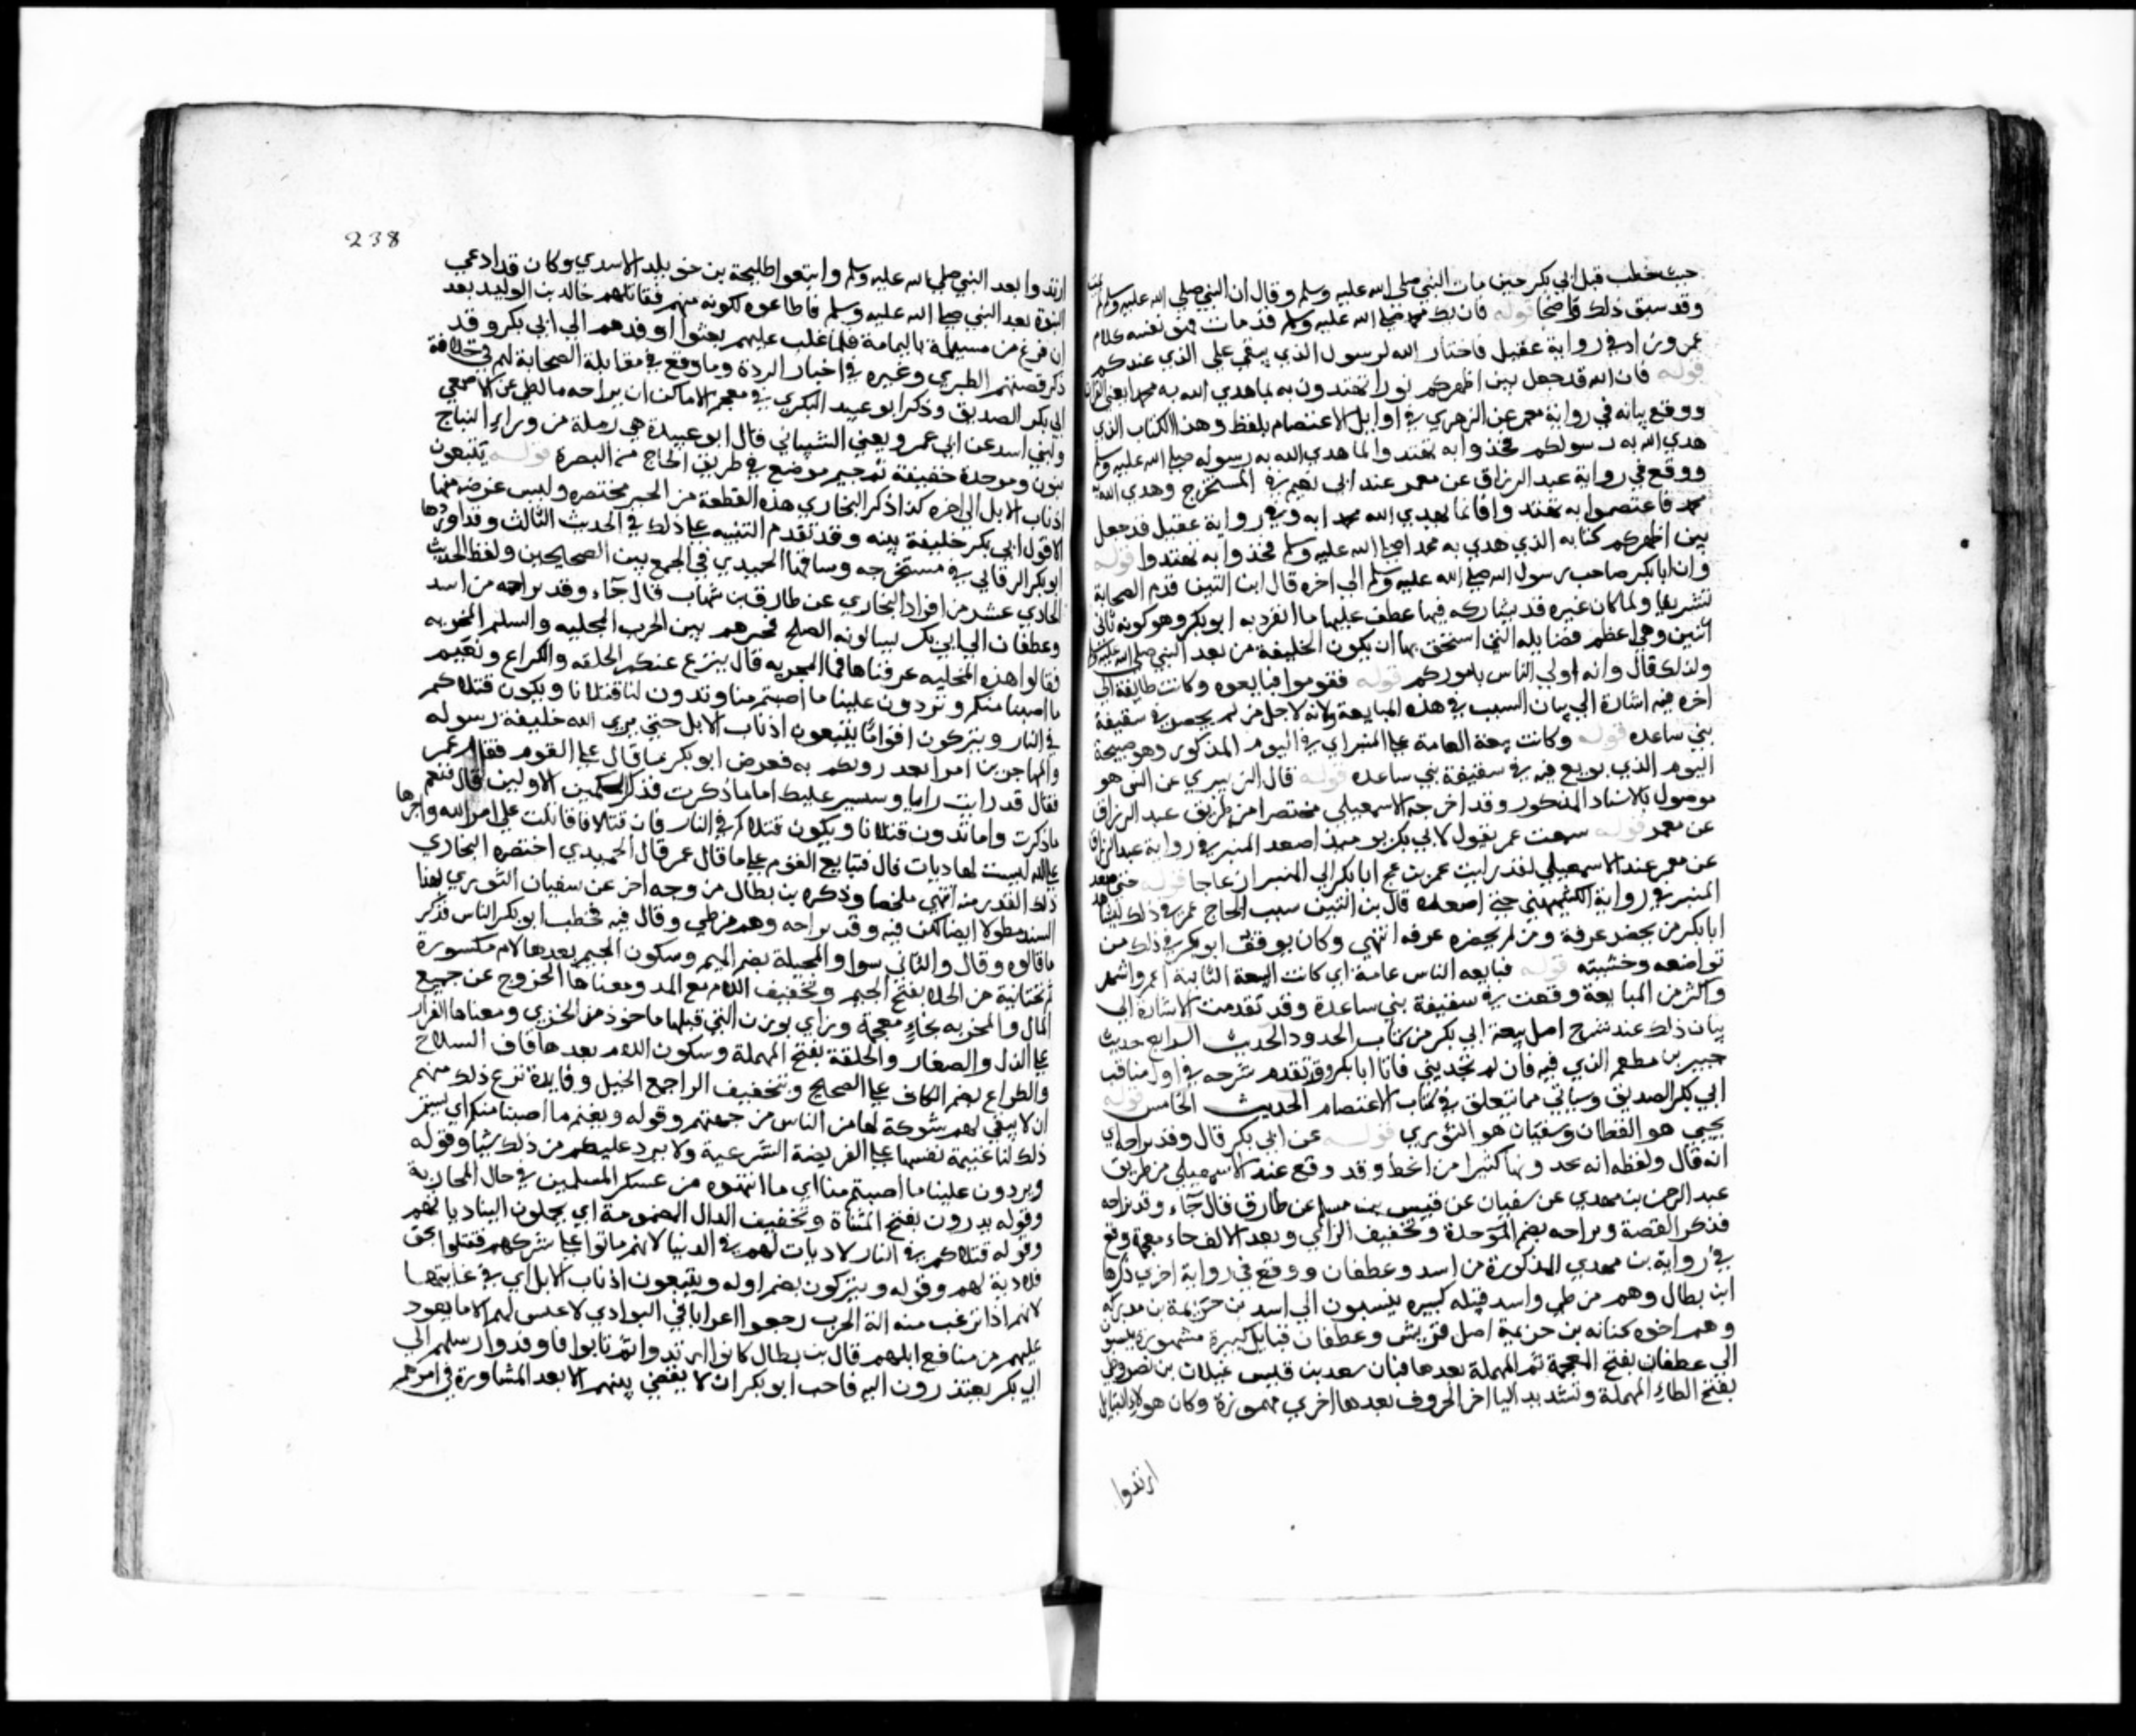 حيث خطب قبل ابي بكر حين مات النبي صلى الله عليه وسلم وقال ان النبي صلى الله عليه وسلم
وقد سبق ذلك واضحا قوله فان يك محمد صلى الله عليه وسلم قد مات هو نفسه كلام
عمر وزاد في رواية عقيل فاختار الله لرسول الذي يبقى على الذي عندكم
قوله فان الله قد جعل بين اظهركم نورا تهتدون به بما هدي الله به محمدا يعني القران
ووقع بيانه في رواية معمر عن الزهري في اوايل الاعتصام بلفظ وهذا الكتاب الذي
هدي الله به رسولكم فخذوا به تهتدوا لما هدي الله به رسوله صلى الله عليه وسلم
ووقع في رواية عبد الرزاق عن معمر عند ابي نعيم في المستخرج وهدي الله به
محمد فاعتصموا به تهتدوا فانما يهدي الله محمدا به وفي رواية عقيل قد جعل
بين اظهركم كتابه الذي هدي به محمدا صلى الله عليه وسلم فخذوا به تهتدوا قوله
وان ابا بكر صاحب رسول الله صلى الله عليه وسلم الى اخره قال ابن التين قدم الصحابة
لشرفها ولما كان غيره قد يشاركه فيها عطف عليها ما انفرد به ابو بكر وهو كونه ثاني
اثنين وهي اعظم فضايله التي استحق بها ان يكون الخليفة من بعد النبي صلى الله عليه وسلم
ولذلك قال وانه اولي الناس باموركم قوله فقوموا فبايعوه وكانت طايفة الى
اخره فيه اشارة الى بيان السبب في هذه المبايعة وانه لاجل من لم يحضر في سقيفة
بني ساعده قوله وكانت بيعة العامة على المنبر اي في اليوم المذكور وهو صبيحة
اليوم الذي بويع فيه في سقيفة بني ساعده قوله قال الزهري عن انس هو
موصول بالاسناد المذكور وقد اخرجه الاسمعيلي مختصرا من طريق عبد الرزاق
عن معمر قوله سمعت عمر يقول لابي بكر يوميذ اصعد المنبر في رواية عبد الرزاق
عن معمر عند الاسمعيلي لقد رايت عمر يزعج ابا بكر الى المنبر ازعاجا قوله حتى صعد
المنبر في رواية الكشميهني حتى اصعده قال بن التين سبب الحاح عمر في ذلك ليشاهد
ابا بكر من يحضر عرفة ومن لم يحضره عرفه انتهى وكان توقف ابو بكر في ذلك من
تواضعه وخشيته قوله فبايعه الناس عامة اي كانت البيعة الثانية اعم واشهر
واكثر من المبايعة وقعت في سقيفة بني ساعدة وقد تقدمت الاشارة الى
بيان ذلك عند شرح اصل بيعة ابي بكر من كتاب الحدود الحديث الرابع حديث
جبير بن مطعم الذي فيه فان لم تجديني فاتي ابا بكر وقد تقدم شرحه في اول مناقب
ابي بكر الصديق وسياتي مما يتعلق في كتاب الاعتصام الحديث الخامس قوله
يحيى هو القطان وسفيان هو الثوري قوله عن ابي بكر قال وفد بزاخه اي
انه قال ولفظه انه يحدونها كثيرا من الخط وقد وقع عند الاسمعيلي من طريق
عبد الرحمن بن مهدي عن سفيان عن قيس بن مسلم عن طارق قال جآء وفد بزاخه
فذكر القصة وبزاخه بضم الموحدة وتخفيف الزاي وبعد الالف خاء معجمة وقع
في رواية بن مهدي المذكورة من اسد وغطفان ووقع في رواية اخرى ذكرها
ابن بطال وهم من طي واسد قبيلة كبيره ينسبون الى اسد بن خزيمة بن مدركه
وهم اخوه كنانه بن خزيمة اصل قريش وغطفان قبايل كبيرة مشهورة ينسبون
الي غطفان بفتح المعجمة ثم المهملة بعدها فبان سعد بن قيس عيلان بن نضر وطي
بفتح الطاء المهملة وتشديد اليا اخر الحروف بعدها اخرى مهموزة وكان هولاء القبايل
ارتدوا
238
ارتدوا بعد النبي صلى الله عليه وسلم واتبعوا طليحة بن خويلد الاسدي وكان قد ادعى
النبوة بعد النبي صلى الله عليه وسلم فاطاعوه لكونه منهم فقاتلهم خالد بن الوليد بعد
ان فرغ من مسيلمة باليمامة فلما غلب عليهم بعثوا وفدهم الى ابي بكر وقد
ذكر قصتهم الطبري وغيره في اخبار الردة وما وقع في مقابلة الصحابة لهم في خلافة
ابي بكر الصديق وذكر ابو عبيد البكري في معجم الاماكن ان بزاخه ما لطي عن الاصمعي
ولبني اسد عن ابي عمرو يعني الشيباني قال ابو عبيدة هي رملة من وراء النباج
بنون وموحدة خفيفة ثم جيم موضع في طريق الحاج من البصرة قوله يتبعون
اذناب الابل الى اخره كذا ذكر البخاري هذه القطعة من الخبر مختصره وليس غرضه منها
الا قول ابي بكر خليفة نبيه وقد تقدم التنبيه على ذلك في الحديث الثالث وقد اوردها
ابو بكر البرقاني في مستخرجه وساقها الحميدي في الجمع بين الصحيحين ولفظ الحديث
الحادي عشر من افراد البخاري عن طارق بن شهاب قال جآء وفد بزاخه من اسد
وغطفان الى ابي بكر يسالونه الصلح فخيرهم بين الحرب المجليه والسلم المخزيه
فقالوا هذه المجليه عرفناها فما المخزيه قال ينزع عنكم الحلقه والكراع ونغنم
ما اصبنا منكم وتردون علينا ما اصبتم منا وتدون لنا قتلانا ويكون قتلاكم
في النار ويتركون اقواما يتبعون اذناب الابل حتى يري الله خليفة رسوله
والمهاجرين امرا يعذرونكم به فعرض ابو بكر ما قال على القوم فقام عمر
فقال قد رايت رايا وسنشير عليك اما ما ذكرت فذكر الحكمين الاولين قال فنعم
ما ذكرت واما تدون قتلانا ويكون قتلاكم في النار فان قتلانا قاتلت على امر الله واجرها
على الله ليست لها ديات قال فتبايع القوم على ما قال عمر قال الحميدي اختصره البخاري
ذلك القدر منه انتهى ملخصا وذكره بن بطال من وجه اخر عن سفيان الثوري بهذا
السند مطولا ايضا لكن فيه وفد بزاخه وهم من طي وقال فيه فخطب ابو بكر الناس فذكر
ما قالوه وقال والثاني سوا والمجيلة بضم الميم وسكون الجيم بعدها لام مكسورة
ثم تحتانية من الجلاء بفتح الجيم وتخفيف اللام مع المد ومعناها الخروج عن جميع
المال والمخزيه بخاءٍ معجمة وزاي بوزن التي قبلها ماخوذ من الخزي ومعناها القرار
على الذل والصغار والحلقة بفتح المهملة وسكون اللام بعدها قاف السلاح
والكراع بضم الكاف على الصحيح وتخفيف الرا جمع الخيل وفايدة نزع ذلك منهم
ان لا يبقى لهم شوكة ليامن الناس من جهتهم وقوله ونغنم ما اصبنا منكم اي يستمر
ذلك لنا غنيمة نقسمها على الفريضة الشرعية ولا يرد عليكم من ذلك شيا وقوله
ويردون علينا ما اصبتم منا اي ما انتهبتوه من عسكر المسلمين في حال المحاربة
وقوله يدون بفتح المثناة وتخفيف الدال المضمومة اي يحملون الينا دياتهم
وقوله قتلاكم في النار لا ديات لهم في الدنيا لانهم ماتوا على شركهم فقتلوا بحق
فلا دية لهم وقوله ويتركون بضم اوله ويتبعون اذناب الابل اي في غايتها
لانهم اذا نزعت منه الة الحرب رجعوا اعرابا في البوادي لا عيش لهم الا ما يعود
عليهم من منافع ابلهم قال بن بطال كانوا ارتدوا ثم تابوا فاوفدوا رسلهم الى
ابي بكر يعتذرون اليه فاحب ابو بكر ان لا يقضي بينهم الا بعد المشاورة في امرهم